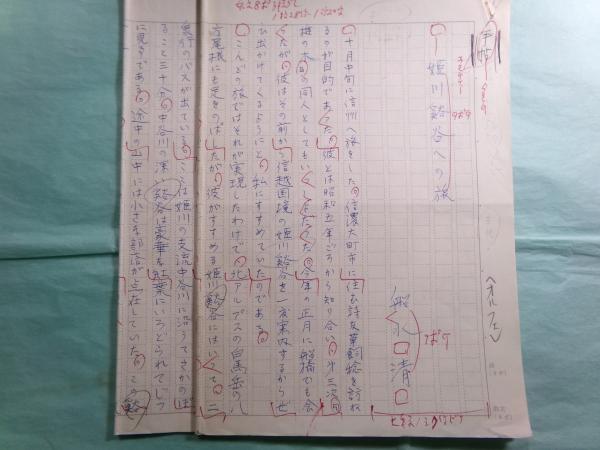 手帖
姫川谿谷への旅
船水清
〈オルフェ〉
十月中旬に信州へ旅をした。信濃大町市に住む詩友草飼稔を訪ね
るのが目的であった。彼とは昭和五年ごろから知り合い、第三次
の同人としてもいっしょだった。今年の正月に船橋でも会
ったが、彼はその前から信越国境の姫川谿谷を一度案内するからぜ
ひ出かけてくるようにと、私にすすめていたのである。
こんどの旅ではそれが実現したわけで、北アルプスの白馬岳の八
方尾根にも足をのばしたが、彼がすすめる姫川谿谷にはいって、二
行のバスが出ている。ここは姫川の支流中谷川に沿うてさかのぼ
ること三十分、中谷川の深い谿谷は豪華な紅葉にいろどられてじつ
に見事である。途中の山中には小さな部落が点在していた。この谿